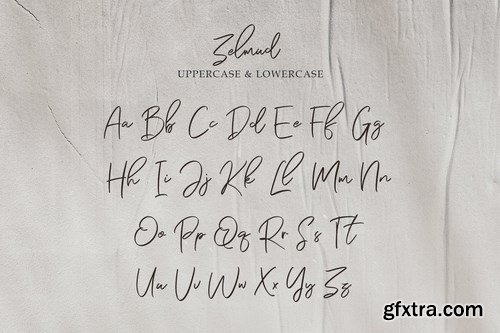 Zelmud
UPPERCASE & LOWERCASE
Aa Bb Cc Dd Ee Ff Gg
Hh Ii Jj Kk Ll Mm Nn
Oo Pp Qq Rr Ss Tt
Uu Vv Ww Xx Yy Zz
gfxtra.com